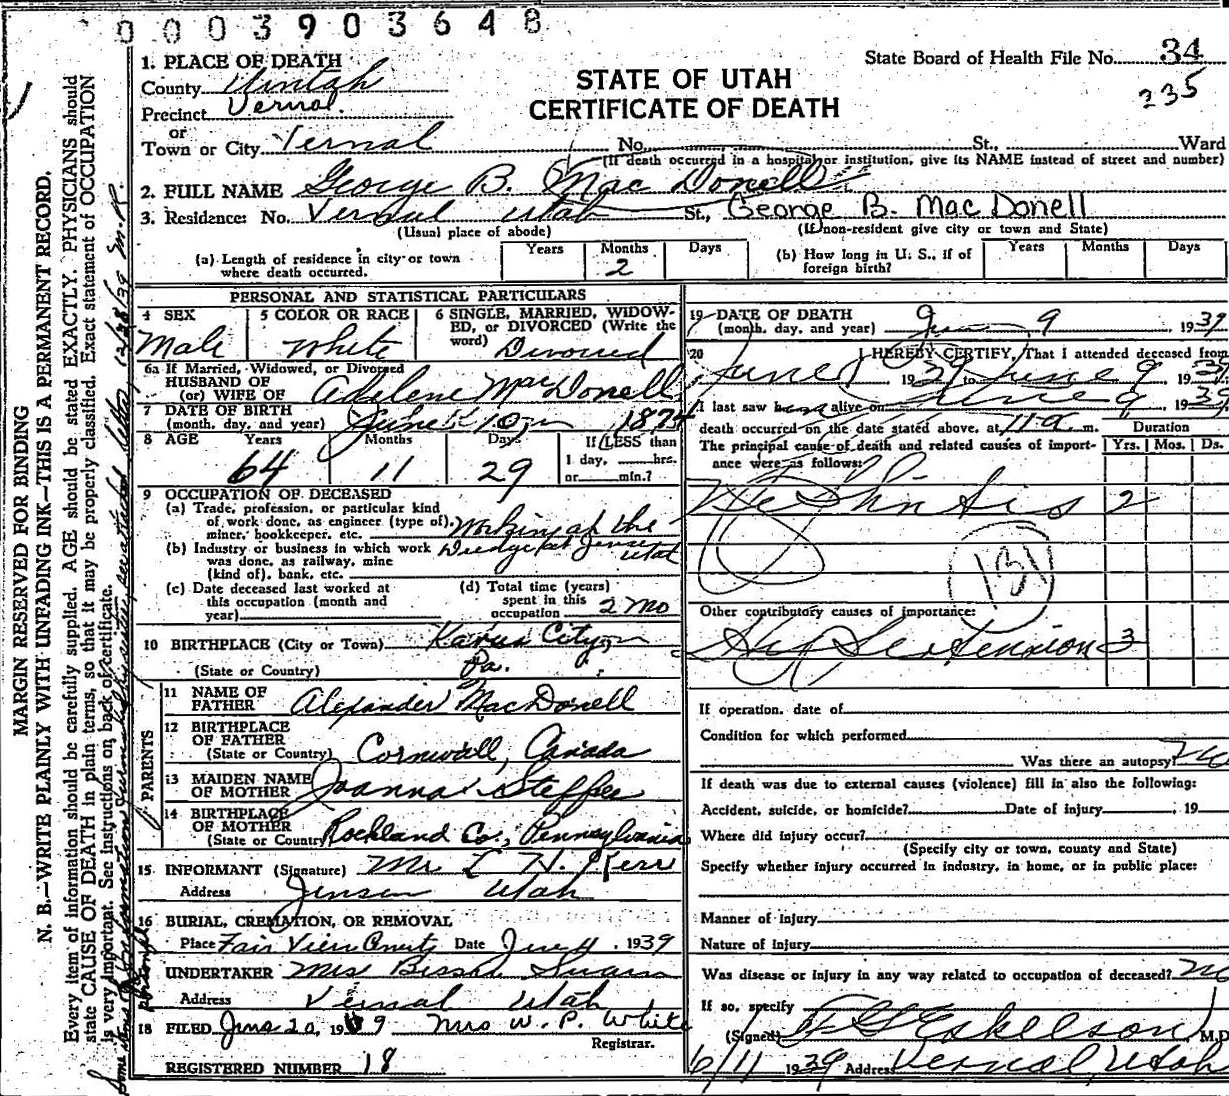 0003903648
State Board of Health File No. 34
235
STATE OF UTAH
CERTIFICATE OF DEATH
1. PLACE OF DEATH
County Uintah
Precinct Vernal.
or
Town or City Vernal No. St., Ward
(If death occurred in a hospital or institution, give its NAME instead of street and number)
2. FULL NAME George B. Mac Donell
3. Residence: No. Vernal Utah St., George B. Mac Donell
(Usual place of abode) (If non-resident give city or town and State)
(a) Length of residence in city or town where death occurred. Years Months 2 Days
(b) How long in U. S., if of foreign birth? Years Months Days
PERSONAL AND STATISTICAL PARTICULARS
4 SEX Male
5 COLOR OR RACE White
6 SINGLE, MARRIED, WIDOWED, or DIVORCED (Write the word) Divorced
6a If Married, Widowed, or Divorced
HUSBAND OF
(or) WIFE OF Adelene MacDonell
7 DATE OF BIRTH
(month, day, and year) June 10 1874
8 AGE Years 64 Months 11 Days 29 If LESS than 1 day, hrs. or min.?
9 OCCUPATION OF DECEASED
(a) Trade, profession, or particular kind of work done, as engineer (type of), miner, bookkeeper, etc. Working at the
(b) Industry or business in which work was done, as railway, mine (kind of), bank, etc. Dredge at Jensen Utah
(c) Date deceased last worked at this occupation (month and year)
(d) Total time (years) spent in this occupation 2 mo
10 BIRTHPLACE (City or Town) Karns City
(State or Country) Pa.
PARENTS
11 NAME OF FATHER Alexander MacDonell
12 BIRTHPLACE OF FATHER (State or Country) Cornwall, Canada
13 MAIDEN NAME OF MOTHER Joanna Steffee
14 BIRTHPLACE OF MOTHER (State or Country) Rockland Co., Pennsylvania
15 INFORMANT (Signature) Mr. L. H. Kerr
Address Jensen Utah
16 BURIAL, CREMATION, OR REMOVAL
Place Fair View Date June 11, 1939
UNDERTAKER Mrs Swain
Address Vernal Utah
18 FILED June 20, 1939 Mrs W. P. White
Registrar.
REGISTERED NUMBER 18
19 DATE OF DEATH
(month, day, and year) June 9, 1939
20 I HEREBY CERTIFY, That I attended deceased from
June 1 1939 to June 9, 1939
I last saw him alive on June 9, 1939
death occurred on the date stated above, at 11 a. m. Duration
The principal cause of death and related causes of importance were as follows: Yrs. Mos. Ds.
Nephritis 2
131
Other contributory causes of importance:
Hypertension 3
If operation, date of
Condition for which performed
Was there an autopsy? No
If death was due to external causes (violence) fill in also the following:
Accident, suicide, or homicide? Date of injury , 19
Where did injury occur?
(Specify city or town, county and State)
Specify whether injury occurred in industry, in home, or in public place:
Manner of injury
Nature of injury
Was disease or injury in any way related to occupation of deceased? No
If so, specify
(Signed) Eskelson M.D.
6/11 1939 Address Vernal, Utah
MARGIN RESERVED FOR BINDING
N. B.—WRITE PLAINLY WITH UNFADING INK—THIS IS A PERMANENT RECORD.
Every item of information should be carefully supplied. AGE should be stated EXACTLY. PHYSICIANS should
state CAUSE OF DEATH in plain terms, so that it may be properly classified. Exact statement of OCCUPATION
is very important. See instructions on back of certificate.